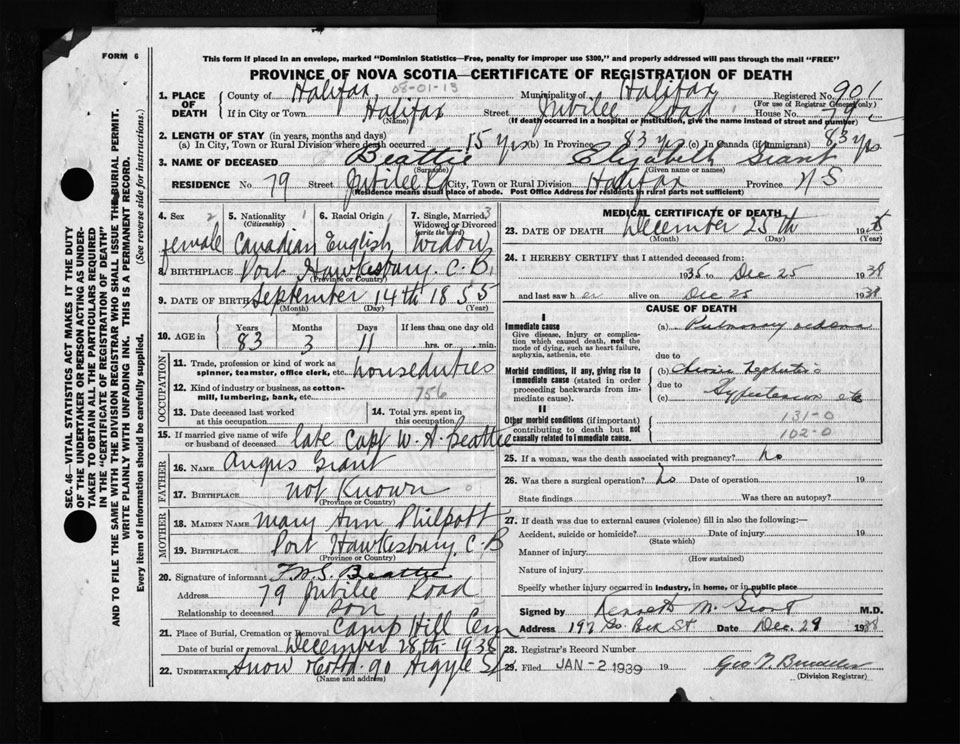 FORM 6
This form if placed in an envelope, marked "Dominion Statistics—Free, penalty for improper use $300," and properly addressed will pass through the mail "FREE"
PROVINCE OF NOVA SCOTIA—CERTIFICATE OF REGISTRATION OF DEATH
1. PLACE OF DEATH County of Halifax Municipality of Halifax Registered No. 901
08-01-13
(For use of Registrar General only)
If in City or Town Halifax Street Jubilee Road House No. 79
(Name) (If death occurred in a hospital or institution, give the name instead of street and number)
2. LENGTH OF STAY (in years, months and days)
(a) In City, Town or Rural Division where death occurred 15 yrs (b) In Province 83 yrs (c) In Canada (if immigrant) 83 yrs
3. NAME OF DECEASED Beattie Elizabeth Grant
(Surname) (Given name or names)
RESIDENCE No. 79 Street Jubilee Rd City, Town or Rural Division Halifax Province N S
(Residence means usual place of abode. Post Office Address for residents in rural parts not sufficient)
4. Sex 2 female
5. Nationality (Citizenship) 1 Canadian
6. Racial Origin 1 English
7. Single, Married, Widowed or Divorced (write the word) 3 Widow
8. BIRTHPLACE Port Hawkesbury. C. B.
(Province or Country)
9. DATE OF BIRTH September 14th 1855
(Month) (Day) (Year)
10. AGE in Years Months Days If less than one day old
83 3 11 hrs. or min.
OCCUPATION
11. Trade, profession or kind of work as spinner, teamster, office clerk, etc. houseduties
12. Kind of industry or business, as cotton-mill, lumbering, bank, etc. 756
13. Date deceased last worked at this occupation
14. Total yrs. spent in this occupation
15. If married give name of wife or husband of deceased late Capt W. H. Beattie
FATHER
16. NAME Angus Grant
17. BIRTHPLACE not Known 0
(Province or Country)
MOTHER
18. MAIDEN NAME Mary Ann Philpott
19. BIRTHPLACE Port Hawkesbury, C. B
(Province or Country)
20. Signature of informant Beattie
Address 79 Jubilee Road
Relationship to deceased son
21. Place of Burial, Cremation or Removal Camp Hill Cem
Date of burial or removal December 28th 1938
22. UNDERTAKER Snow 90 Argyle St
(Name and address)
MEDICAL CERTIFICATE OF DEATH
23. DATE OF DEATH December 25th 19
(Month) (Day) (Year)
24. I HEREBY CERTIFY that I attended deceased from:
1935 to Dec 25 1938
and last saw h er alive on Dec 25 1938
CAUSE OF DEATH
I
Immediate cause
Give disease, injury or complication which caused death, not the mode of dying, such as heart failure, asphyxia, asthenia, etc.
(a) Pulmonary oedema
due to
Morbid conditions, if any, giving rise to immediate cause (stated in order proceeding backwards from immediate cause).
(b) Chronic Nephritis
due to
(c) Hypertension etc
II
Other morbid conditions (if important) contributing to death but not causally related to immediate cause.
131-0
102-0
25. If a woman, was the death associated with pregnancy? No
26. Was there a surgical operation? No Date of operation 19
State findings Was there an autopsy?
27. If death was due to external causes (violence) fill in also the following:—
Accident, suicide or homicide? Date of injury 19
(State which)
Manner of injury
(How sustained)
Nature of injury
Specify whether injury occurred in industry, in home, or in public place
Signed by Kenneth M. Grant M.D.
Address 197 So. Park St Date Dec. 29 1938
28. Registrar's Record Number
29. Filed JAN -2 1939 19
(Division Registrar)
SEC. 46—VITAL STATISTICS ACT MAKES IT THE DUTY
OF THE UNDERTAKER OR PERSON ACTING AS UNDERTAKER TO OBTAIN ALL THE PARTICULARS REQUIRED
IN THE "CERTIFICATE OF REGISTRATION OF DEATH"
AND TO FILE THE SAME WITH THE DIVISION REGISTRAR WHO SHALL ISSUE THE BURIAL PERMIT.
WRITE PLAINLY WITH UNFADING INK. THIS IS A PERMANENT RECORD.
Every item of information should be carefully supplied. (See reverse side for instructions.)